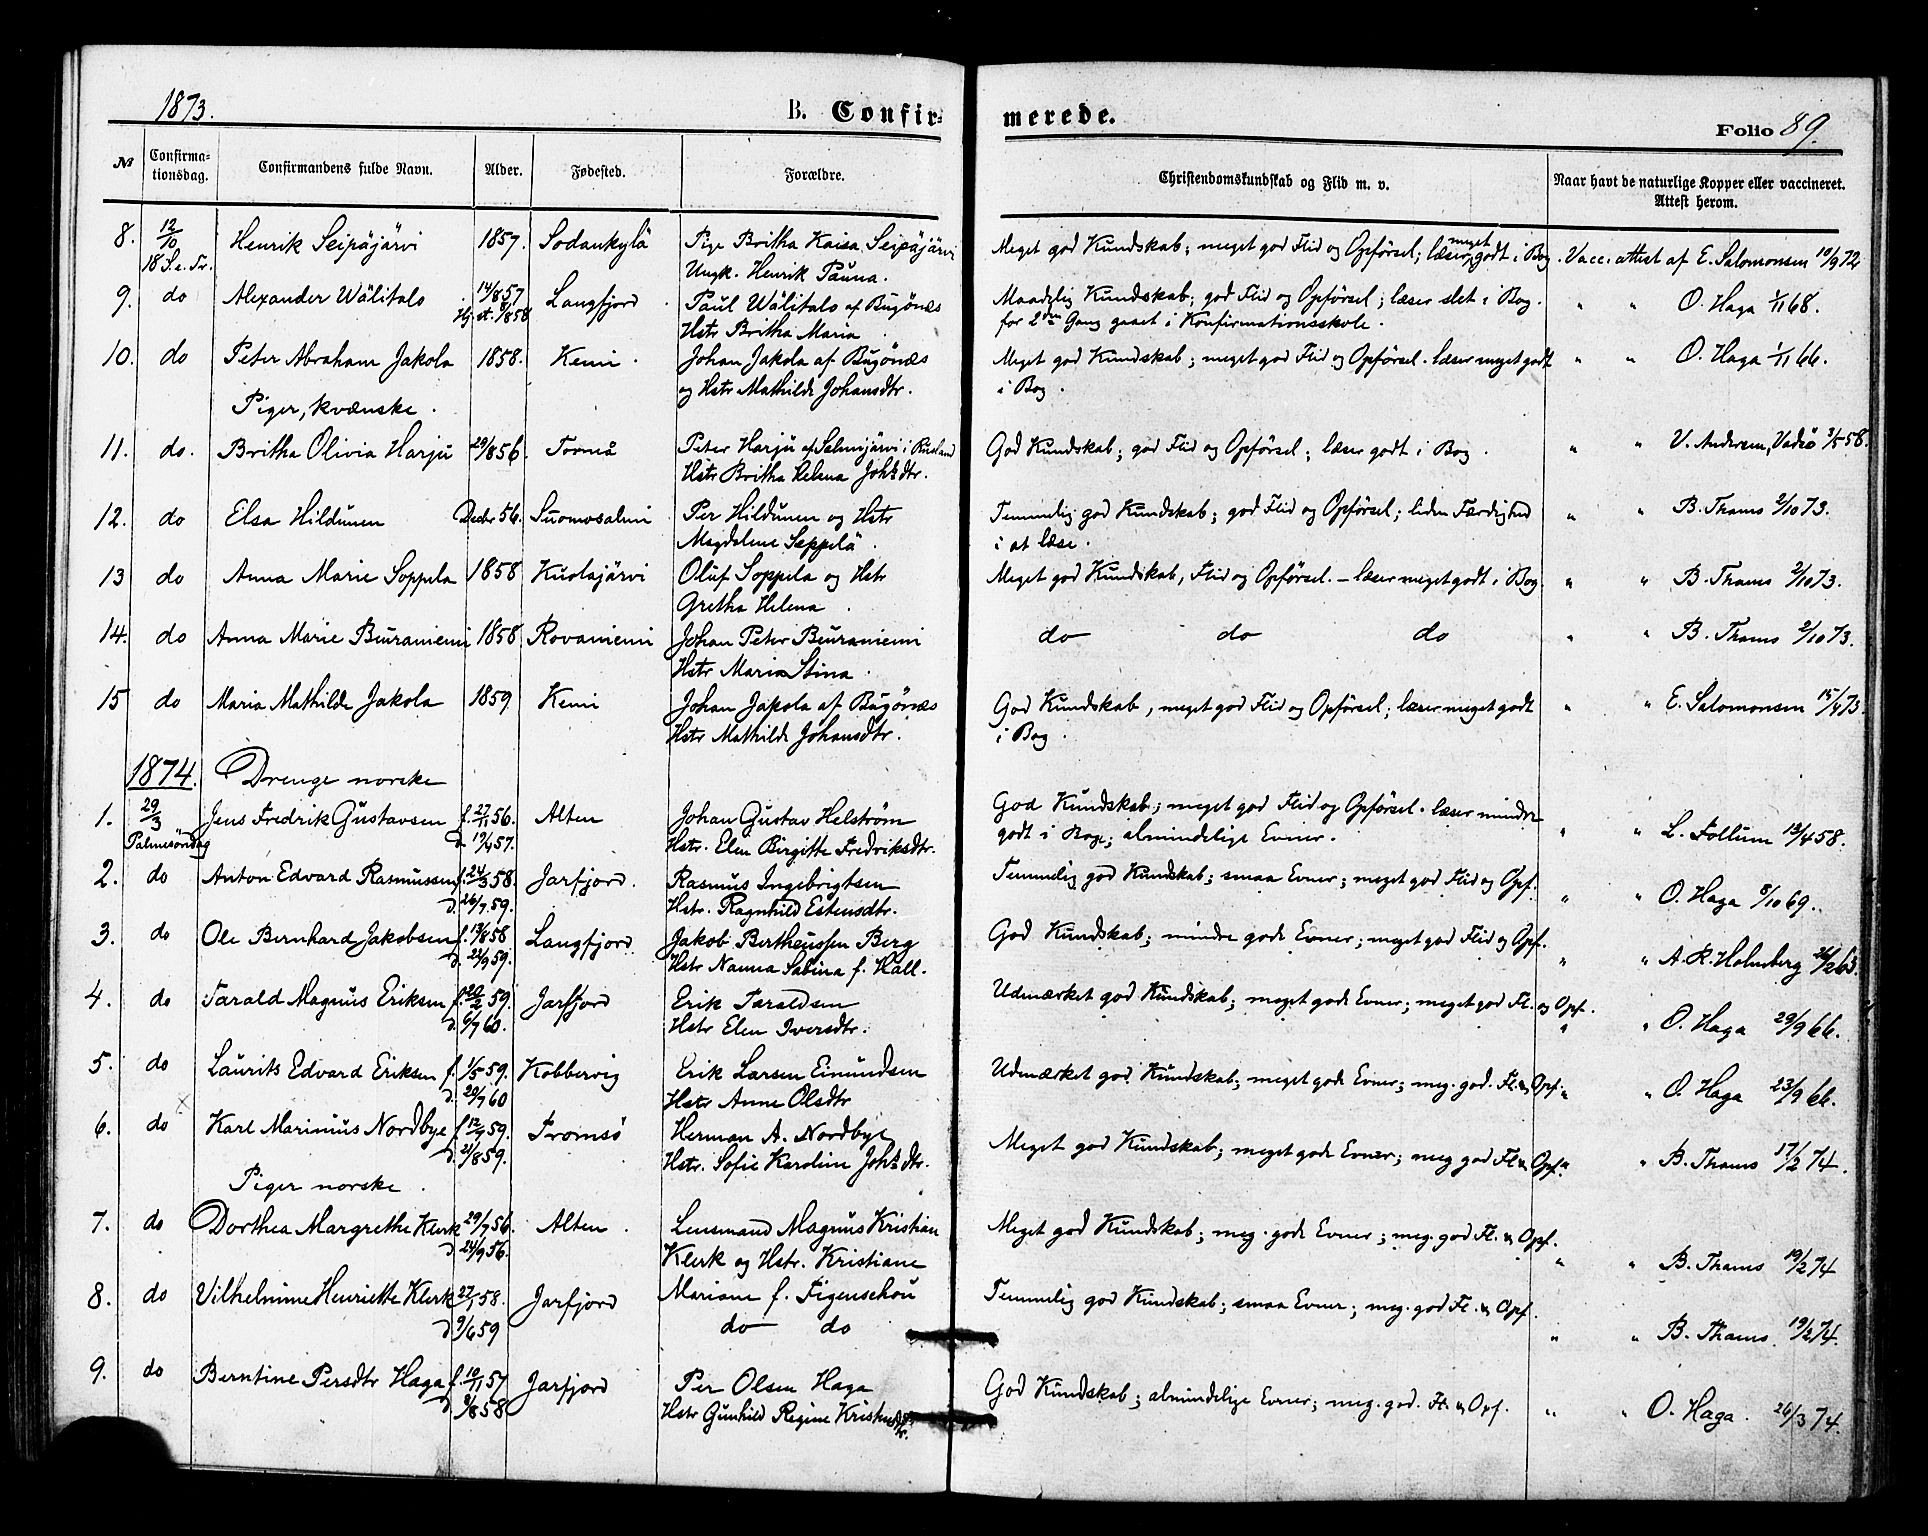 1873.
B. Confirmerede.
Folio 89.
№ Confirmationsdag. Confirmandens fulde Navn. Alder. Fødested. Forældre. Christendomskundskab og Flid m. v. Naar havt de naturlige Kopper eller vaccineret. Attest herom.
8. 12/10 Henrik Seipäjärvi 1857. Sodankylä Pige Britha Kaisa Seipäjärvi Meget god Kundskab; meget god Flid og Opførsel; læser meget godt i Bog. Vacc. attest af E. Salomonsen 10/9 72
18 S. e. Tr. Ungk. Henrik Pauna.
9. do Alexander Wälitalo 14/8 57 Langfjord Paul Wälitalo af Bugönæs Maadelig Kundskab; god Flid og Opførsel; læser slet i Bog. " " O. Haga 1/11 68.
Hj. dt. 1858 Hstr Britha Maria for 2den Gang gaaet i Konfirmationsskole.
10. do Peter Abraham Jakola 1858. Kemi. Johan Jakola af Bugönæs Meget god Kundskab; meget god Flid og Opførsel. læser meget godt " " O. Haga 1/11 66.
og Hstr Mathilde Johansdtr. i Bog.
Piger, kvænske.
11. do. Britha Olivia Harju 29/8 56. Torneå Peter Harju af Salmijärvi i Rusland God Kundskab; god Flid og Opførsel; læser godt i Bog. " " V. Andersen, Vadsö 3/5 58.
Hstr Britha Helena Johsdtr.
12. do Elsa Hildunen Decbr 56. Suomosalmi Per Hildunen og Hstr Temmelig god Kundskab; god Flid og Opførsel; liden Færdighed " " B. Thams 2/10 73.
Magdalene Seppelä. i at læse.
13 do Anna Marie Soppela 1858 Kuolajärvi Oluf Soppela og Hstr Meget god Kundskab, Flid og Opførsel. – læser meget godt i Bog. " " B. Thams 2/10 73.
Gretha Helena.
14. do Anna Marie Beuraniemi 1858. Rovaniemi Johan Peter Beuraniemi do do do " " B. Thams 2/10 73.
Hstr Maria Stina.
15 do Maria Mathilde Jakola 1859 Kemi Johan Jakola af Bugönæs God Kundskab, meget god Flid og Opførsel; læser meget godt " " E. Salomonsen 15/4 73.
Hstr Mathilde Johansdtr. i Bog.
1874. Drenge norske
1. 29/3 Jens Fredrik Gustavsen f. 27/11 56. Alten Johan Gustav Helström God Kundskab; meget god Flid og Opførsel. læser mindre
Palmesöndag d. 19/4 57. Hstr. Elen Birgitte Fredriksdtr. godt i Bog; almindelige Evner. " " L. Follum 13/4 58.
2. do Anton Edvard Rasmussen f. 24/3 58. Jarfjord. Rasmus Ingebrigtsen Temmelig god Kundskab; smaa Evner; meget god Flid og Opf.
d. 26/7 59. Hstr. Ragnhild Estensdtr. " " O. Haga 8/10 69.
3. do Ole Bernhard Jakobsen f. 13/8 58 Langfjord. Jakob Bertheussen Berg God Kundskab; mindre gode Evner; meget god Flid og Opf.
d. 24/9 59. Hstr Nanna Sabina f. Kall. " " A. R. Holmberg 26/2 63.
4. do Tarald Magnus Eriksen f. 20/2 59. Jarfjord Erik Taraldsen Udmærket god Kundskab; meget gode Evner; meget god Fl. og Opf.
d. 6/7 60. Hstr Elen Iversdtr. " " O. Haga 29/9 66.
5. do Laurits Edvard Eriksen f. 1/5 59. Kobbervig Erik Larsen Eimundsen Udmærket god Kundskab; meget gode Evner; meg. god. Fl. & Opf. " " O. Haga 23/9 66.
d. 20/7 60 Hstr Anne Olsdtr
6. do Karl Marinius Nordbye f. 12/4 59. Tromsö Herman A. Nordbye Meget god Kundskab; meget gode Evner; meg god Fl & Opf. " " B. Thams 17/2 74.
d. 21/8 59. Hstr. Sofie Karoline Johsdtr.
Piger norske.
7. do Dorthea Margrethe Klerk 29/7 56. Alten. Lensmand Magnus Kristian Meget god Kundskab; meg. gode Evner; meg. god Fl. & Opf.
d. 24/9 56. Klerk og Hstr. Kristiane " " B. Thams 19/2 74
8. do Vilhelmine Henriette Klerk 27/1 58. Jarfjord Mariane f. Figenschou Temmelig god Kundskab; smaa Evner; meg. god Fl. & Opf.
d 9/6 59 do do " " B. Thams. 19/2 74.
9. do Berntine Persdtr Haga f. 10/11 57 Jarfjord Per Olsen Haga God Kundskab; almindelige Evner; meg. god. Fl. & Opf. " " O. Haga. 26/3 74.
d 8/8 58 Hstr Gunhild Regine Kristensdtr.